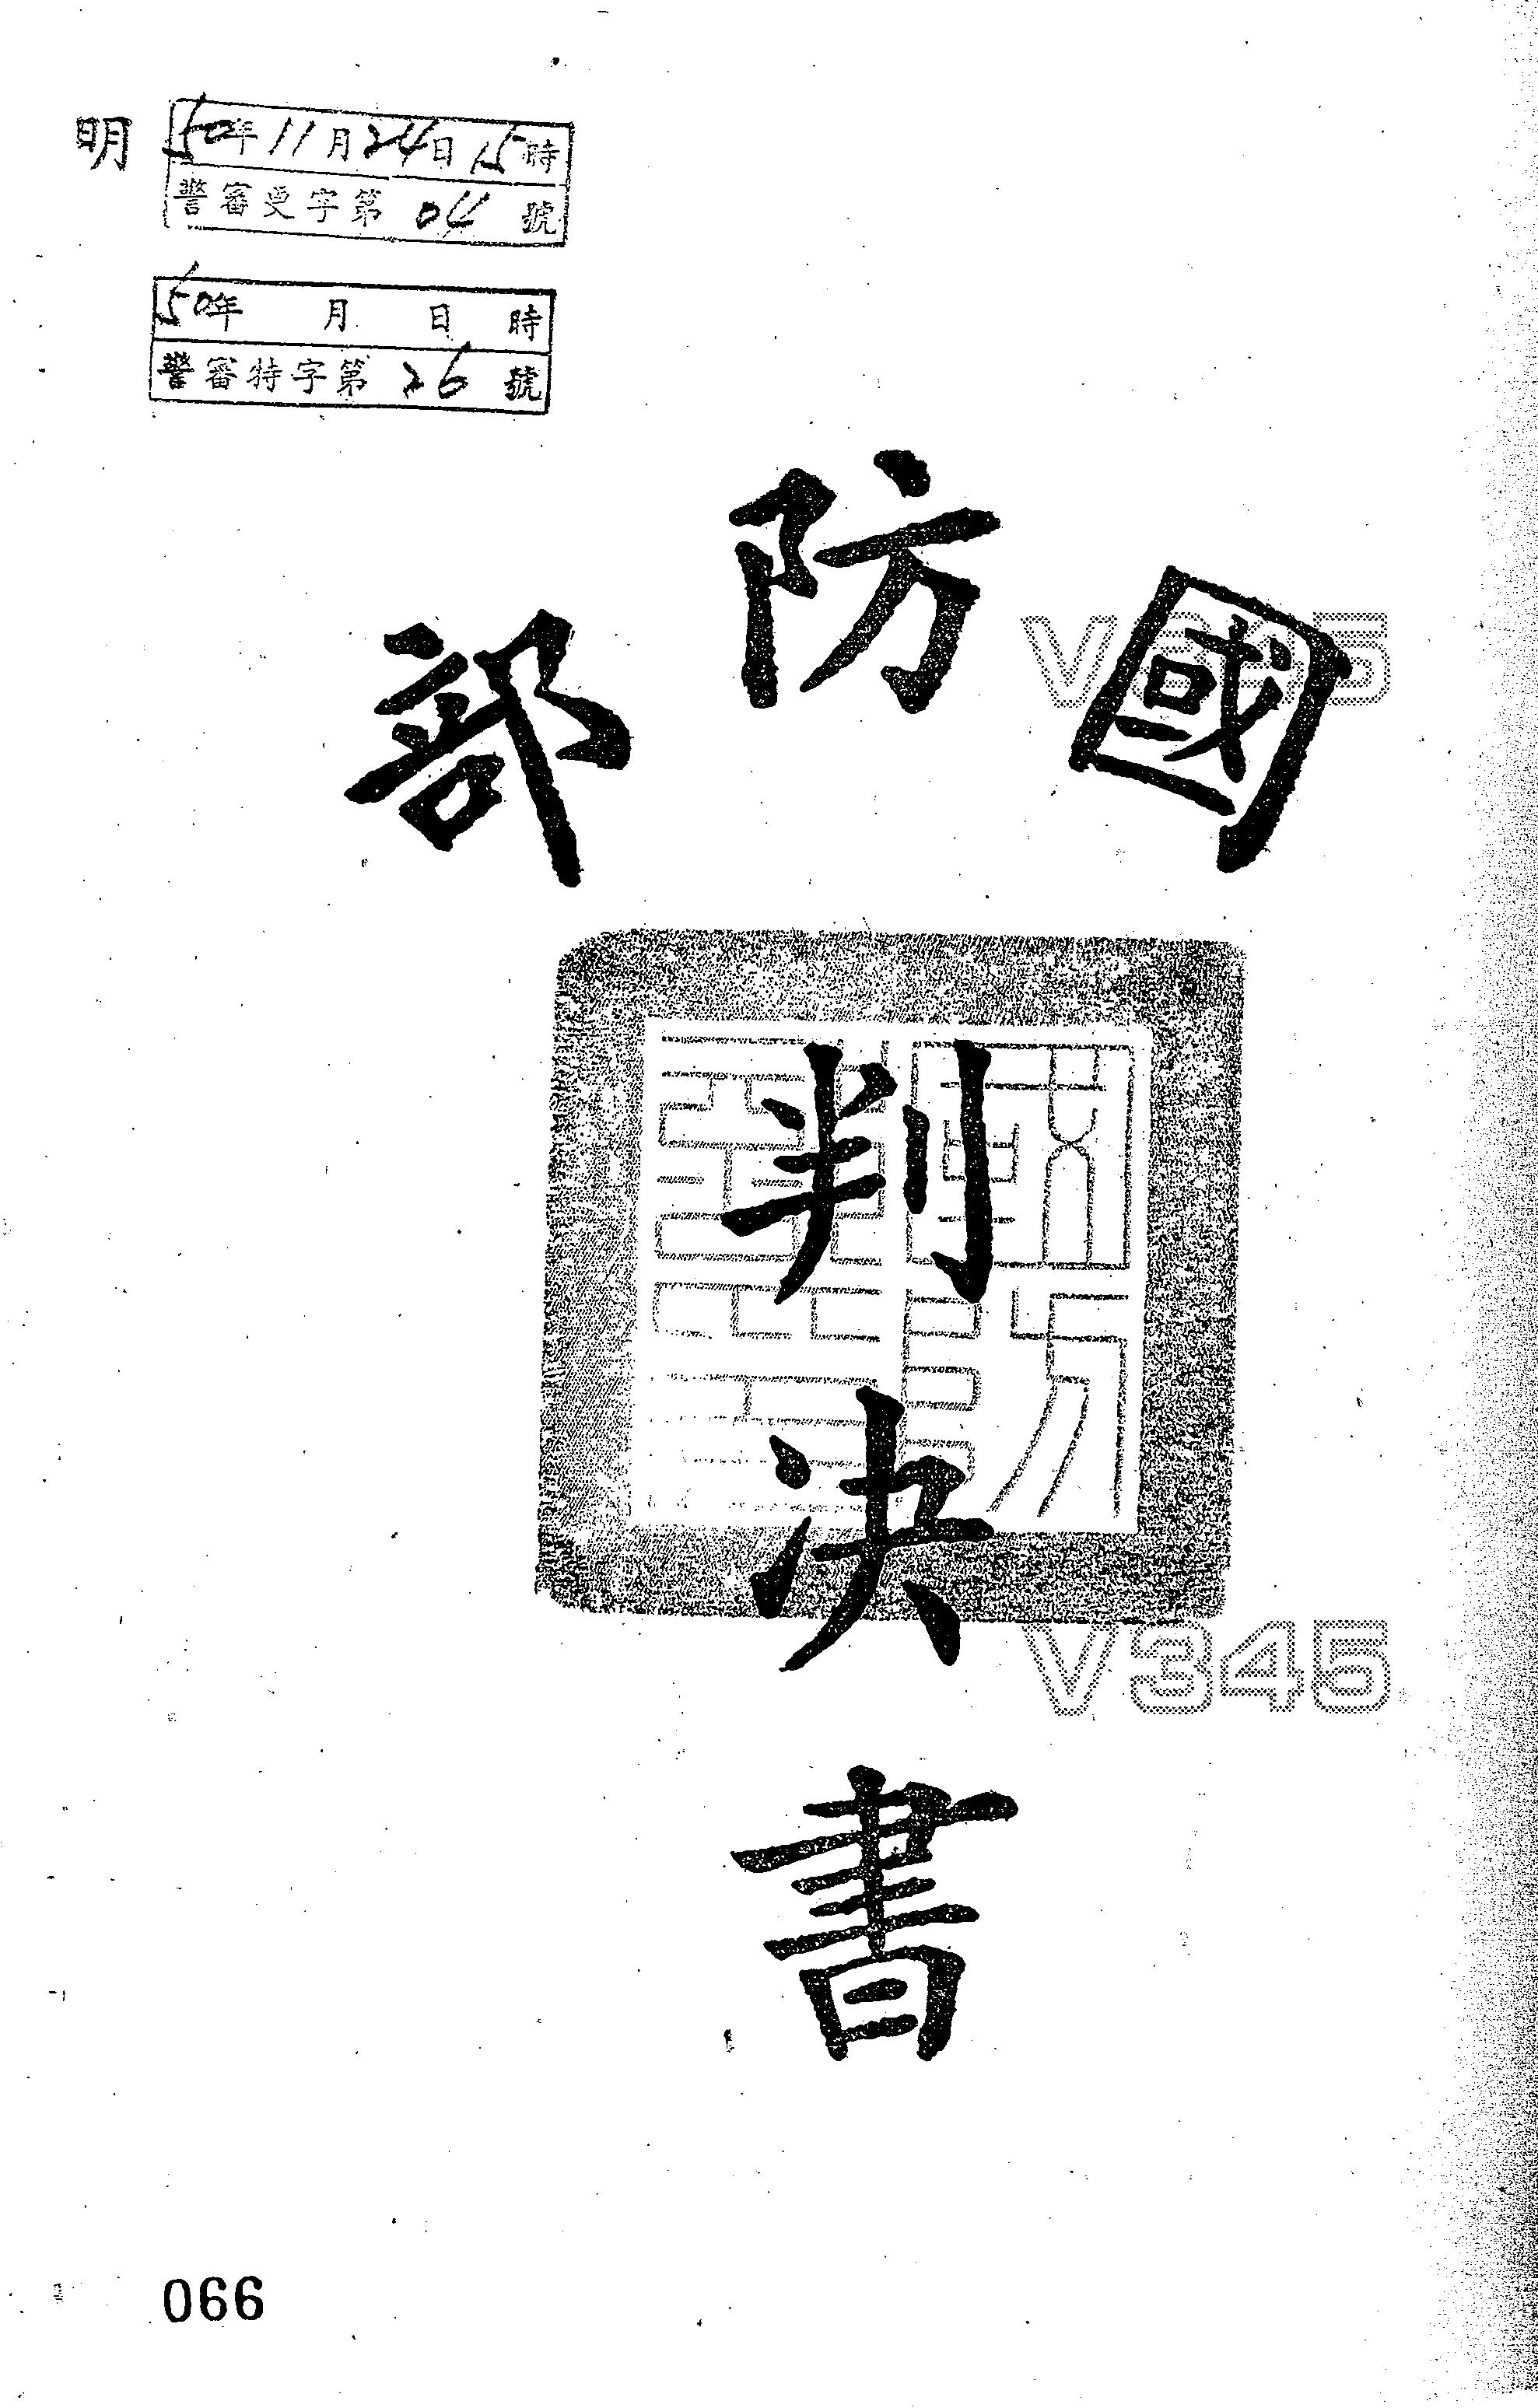 明
50年11月24日15時
警審更字第04號
50年 月 日 時
警審特字第26號
國防部
判決書
V345
V345
066